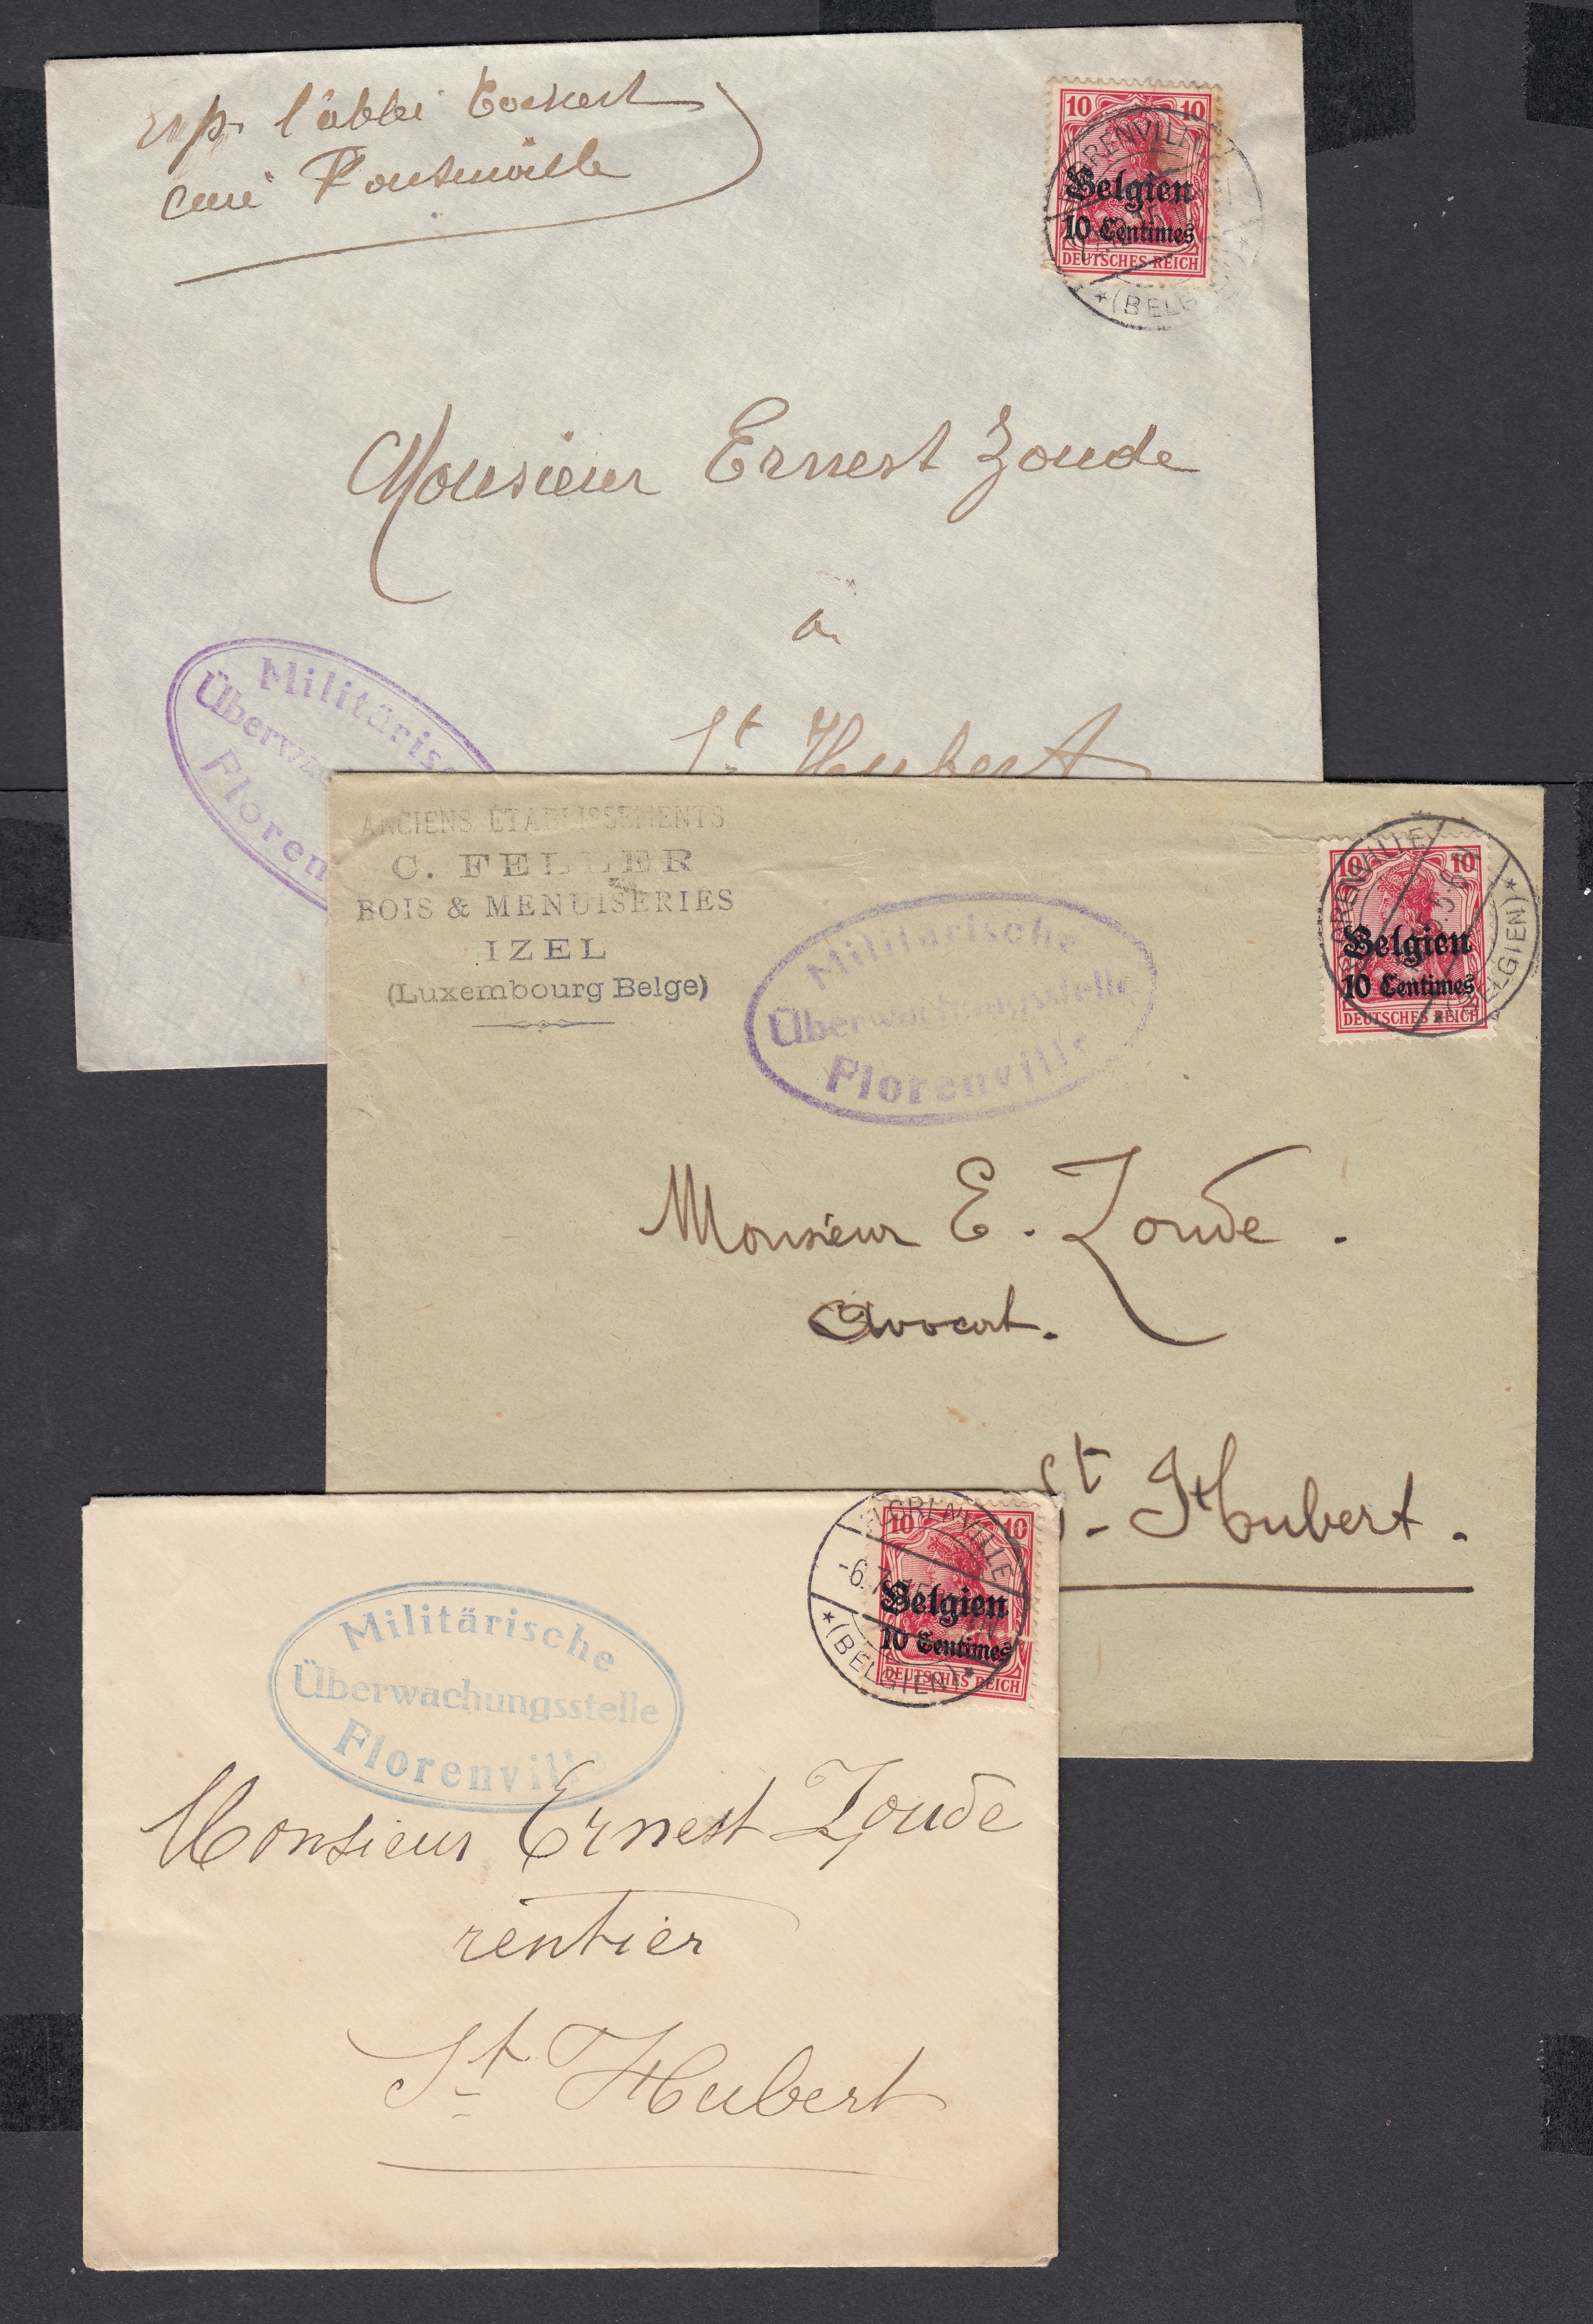 Exp. l'abbé
curé
10 10
Belgien
10 Centimes
DEUTSCHES REICH
FLORENVILLE
*(BELGIEN)*
Monsieur Ernest Zoude
à
St Hubert
Militärisc
Überwac
Floren
ANCIENS ÉTABLISSEMENTS
C. FELLER
BOIS & MENUISERIES
IZEL
(Luxembourg Belge)
Militärische
Überwachungsstelle
Florenville
10 10
Belgien
10 Centimes
DEUTSCHES REICH
FLORENVILLE
*(BELGIEN)*
Monsieur E. Zoude.
Avocat.
St Hubert.
Militärische
Überwachungsstelle
Florenville
10 10
Belgien
10 Centimes
DEUTSCHES REICH
FLORENVILLE
-6.7.15
*(BELGIEN)*
Monsieur Ernest Zoude
rentier
St Hubert